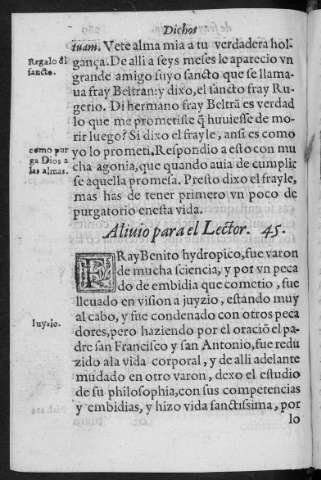 Dichos
tuam. Vete alma mia a tu verdadera hol
gança. De alli a seys meses le aparecio vn
Regalo dl
sancto.
grande amigo suyo sancto que se llama-
ua fray Beltran: y dixo, el sancto fray Ru-
gerio. Di hermano fray Beltrã es verdad
lo que me prometiste q̃ huuiesse de mo-
rir luego? Si dixo el frayle, ansi es como
yo lo prometi. Respondio a esto con mu
como pur
ga Dios a
las almas.
cha agonia, que quando auia de cumplir
se aquella promesa. Presto dixo el frayle,
mas has de tener primero vn poco de
purgatorio enesta vida.
Aliuio para el Lector. 45.
FRay Benito hydropico, fue varon
de mucha sciencia, y por vn peca
do de embidia que cometio, fue
lleuado en vision a juyzio, estãdo muy
al cabo, y fue condenado con otros peca
Iuyzio.
dores, pero haziendo por el oraciõ el pa-
dre san Francisco y san Antonio, fue redu
zido ala vida corporal, y de alli adelante
mudado en otro varon, dexo el estudio
de su philosophia, con sus competencias
y embidias, y hizo vida sanctissima, por
lo